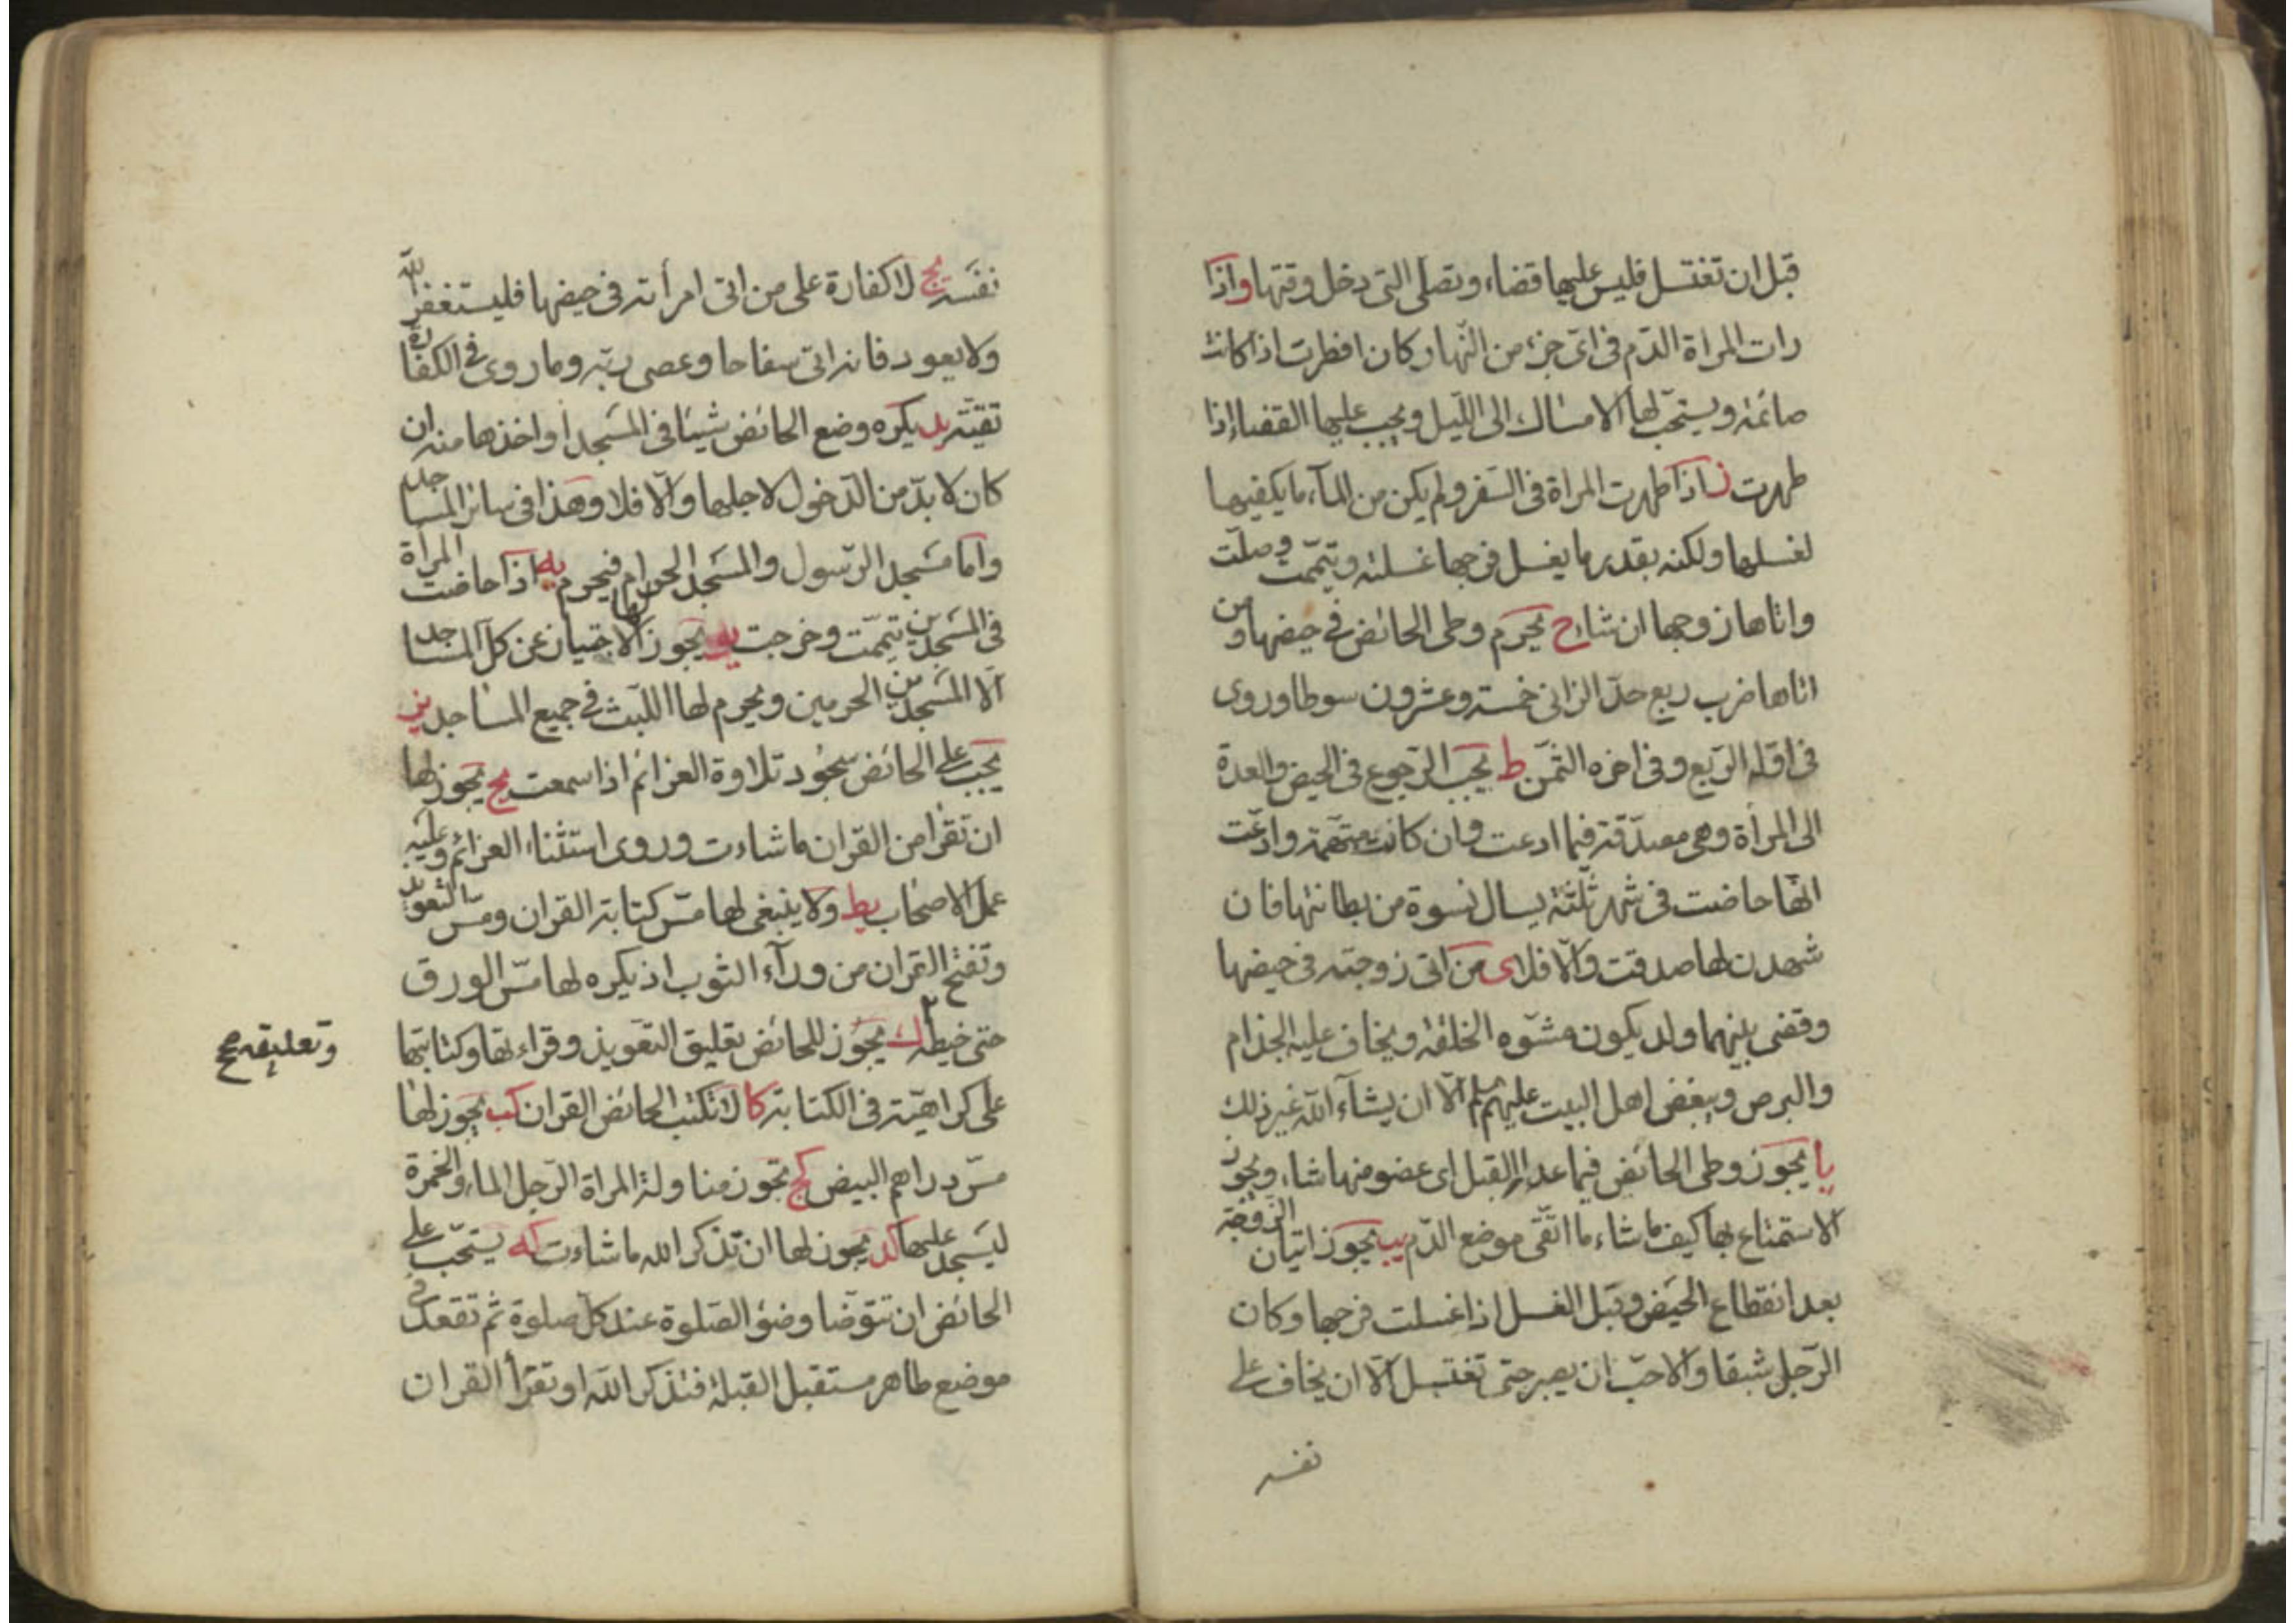 قبل ان تغتسل فليس عليها قضاء وتصلى التى دخل وقتها واذا
رات المراة الدّم فى اىّ جزء من النّهار كان افطرت اذا كانت
صائمة ويستحبّ لها الامساك الى اللّيل ويجب عليها القضا اذا
طهرت ز اذا طهرت المراة فى السّفر ولم يكن من المآء ما يكفيها
لغسلها ولكنه بقدر ما يغسل فرجها غسلته وتيمّمت وصلّت
واتاها زوجها ان شاء ح يحرم وطى الحائض فى حيضها ومن
اتاها ضرب ربع حدّ الزانى خمسة وعشرون سوطا وروى
فى اوّله الرّبع وفى اخره الثّمن ط يجب الرّجوع فى الحيض والعدة
الى المرأة وهى مصدّقة فيما ادعت وان كانت متّهمة وادّعت
انّها حاضت فى شهر ثلثة يسال نسوة من بطانتها فان
شهدن لها صدقت والّا فلا ى من اتى زوجته فى حيضها
وقضى بينهما ولد يكون مشوّه الخلقة ويخاف عليه الجذام
والبرص وببغض اهل البيت عليهم الّا ان يشآء اللّه غير ذلك
يا يجوز وطى الحائض فيما عدا القبل اى عضو منها شاء ويجوز
الاستمتاع بها كيف ما شاء ما اتّقى موضع الدّم يب يجوز اتيان الزّوجة
بعد انقطاع الحيض وقبل الغسل اذا غسلت فرجها وكان
الرّجل شبقا والاحبّ ان يصبر حتى تغتسل الّا ان يخاف على
نفسه
نفسه يج لا كفارة على من اتى امرأته فى حيضها فليستغفر اللّه
ولا يعود فانه اتى سفاحا وعصى ربّه وما روى فى الكفّارة
تقيّة يد يكره وضع الحائض شيئا فى المسجد واخذها منه ان
كان لا بدّ من الدّخول لاجلها والّا فلا وهذا فى سائر المساجد
وامّا مسجد الرّسول والمسجد الحرام فيحرم يه اذا حاضت المرأة
فى المسجدين تيمّمت وخرجت يو يجوز لها الاجتياز عن كلّ المساجد
الّا المسجدين الحرمين ويحرم لها اللّبث فى جميع المساجد يز
يجب على الحائض سجود تلاوة العزائم اذا سمعت يح يجوز لها
ان تقرا من القران ما شاءت وروى استثناء العزائم وعليه
عمل الاصحاب يط ولا ينبغى لها مسّ كتابة القران ومسّ التعويذ
وتفتح القران من ورآء الثوب اذ يكره لها مسّ الورق
حتى خيطه ك يجوز للحائض تعليق التعويذ وقراءتها وكتابتها
وتعليقه صح
على كراهيّة فى الكتابة كا لا تكتب الحائض القران كب يجوز لها
مسّ دراهم البيض كج تجوز مناولة المراة الرّجل الماء والخمرة
ليسجد عليها كد يجوز لها ان تذكر اللّه ما شاءت كه يستحبّ على
الحائض ان تتوضّا وضوء الصّلوة عند كلّ صلوة ثم تقعد فى
موضع طاهر مستقبل القبلة فتذكر اللّه او تقرأ القران